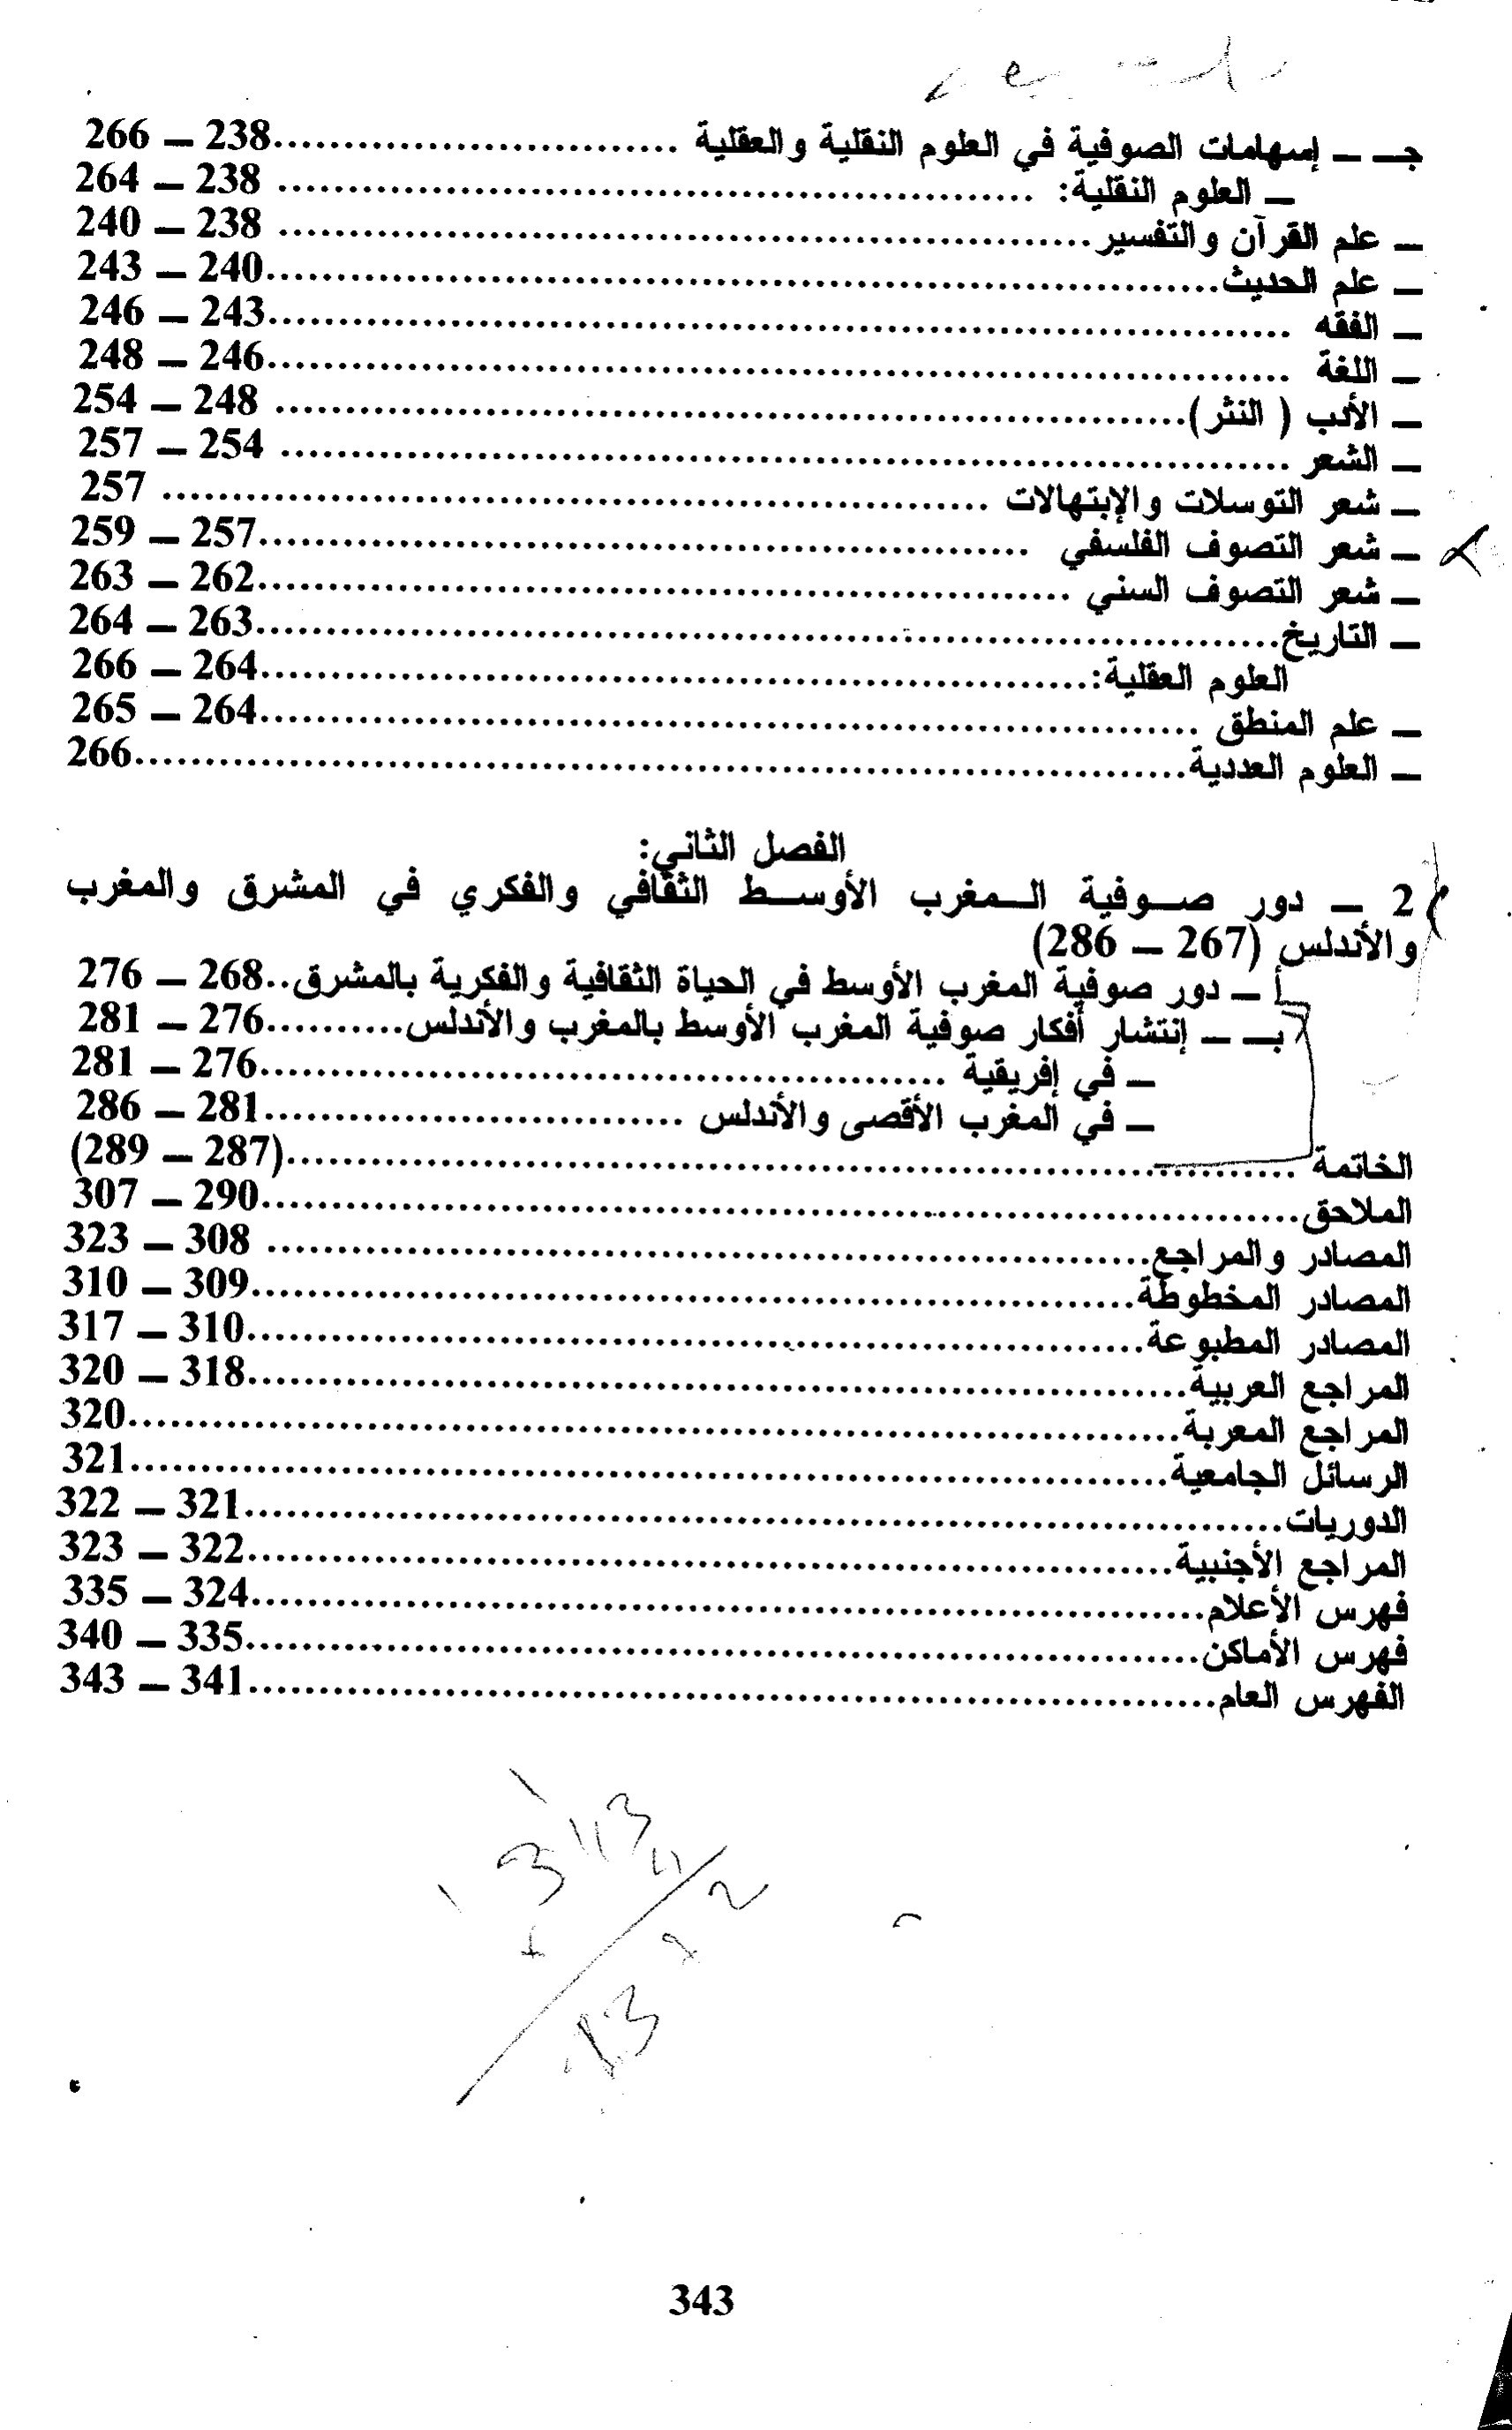 جـ – إسهامات الصوفية في العلوم النقلية والعقلية ..............................238 – 266
– العلوم النقلية: ...................................................... 238 – 264
– علم القرآن والتفسير.......................................................... 238 – 240
– علم الحديث....................................................................240 – 243
– الفقه .........................................................................243 – 246
– اللغة .........................................................................246 – 248
– الأدب ( النثر)................................................................. 248 – 254
– الشعر ........................................................................ 254 – 257
– شعر التوسلات والإبتهالات ........................................................... 257
– شعر التصوف الفلسفي .......................................................257 – 259
– شعر التصوف السني ..........................................................262 – 263
– التاريخ.........................................................................263 – 264
العلوم العقلية:...........................................................264 – 266
– علم المنطق ...................................................................264 – 265
– العلوم العددية...........................................................................266
الفصل الثاني:
2 – دور صـوفية الـمغرب الأوسـط الثقافي والفكري في المشرق والمغرب
والأندلس (267 – 286)
أ – دور صوفية المغرب الأوسط في الحياة الثقافية والفكرية بالمشرق..268 – 276
بـ – إنتشار أفكار صوفية المغرب الأوسط بالمغرب والأندلس..........276 – 281
– في إفريقية .................................................276 – 281
– في المغرب الأقصى والأندلس ..............................281 – 286
الخاتمة ........................................................................(287 – 289)
الملاحق..........................................................................290 – 307
المصادر والمراجع............................................................... 308 – 323
المصادر المخطوطة...............................................................309 – 310
المصادر المطبوعة................................................................310 – 317
المراجع العربية...................................................................318 – 320
المراجع المعربة...........................................................................320
الرسائل الجامعية..........................................................................321
الدوريات..........................................................................321 – 322
المراجع الأجنبية..................................................................322 – 323
فهرس الأعلام....................................................................324 – 335
فهرس الأماكن....................................................................335 – 340
الفهرس العام.....................................................................341 – 343
343